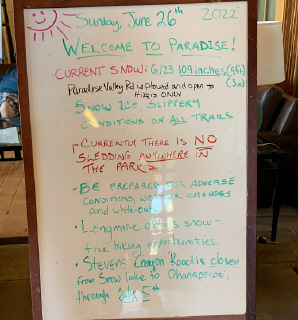 Sunday, June 26th 2022
WELCOME TO PARADISE!
CURRENT SNOW: 6/23 109 inches (9ft)
(3m)
Paradise Valley Rd is plowed and open to
Hikers ONLY
SNOW ICE, SLIPPERY
CONDITIONS ON ALL TRAILS
CURRENTLY THERE IS NO
SLEDDING ANYWHERE IN
THE PARK
• BE PREPARED FOR ADVERSE
CONDITIONS, WEATHER CHANGES
and white-outs
• Longmire offers snow-
free hiking opportunities.
• Stevens Canyon Road is closed
from Snow Lake to Ohanapecosh
through July 5th